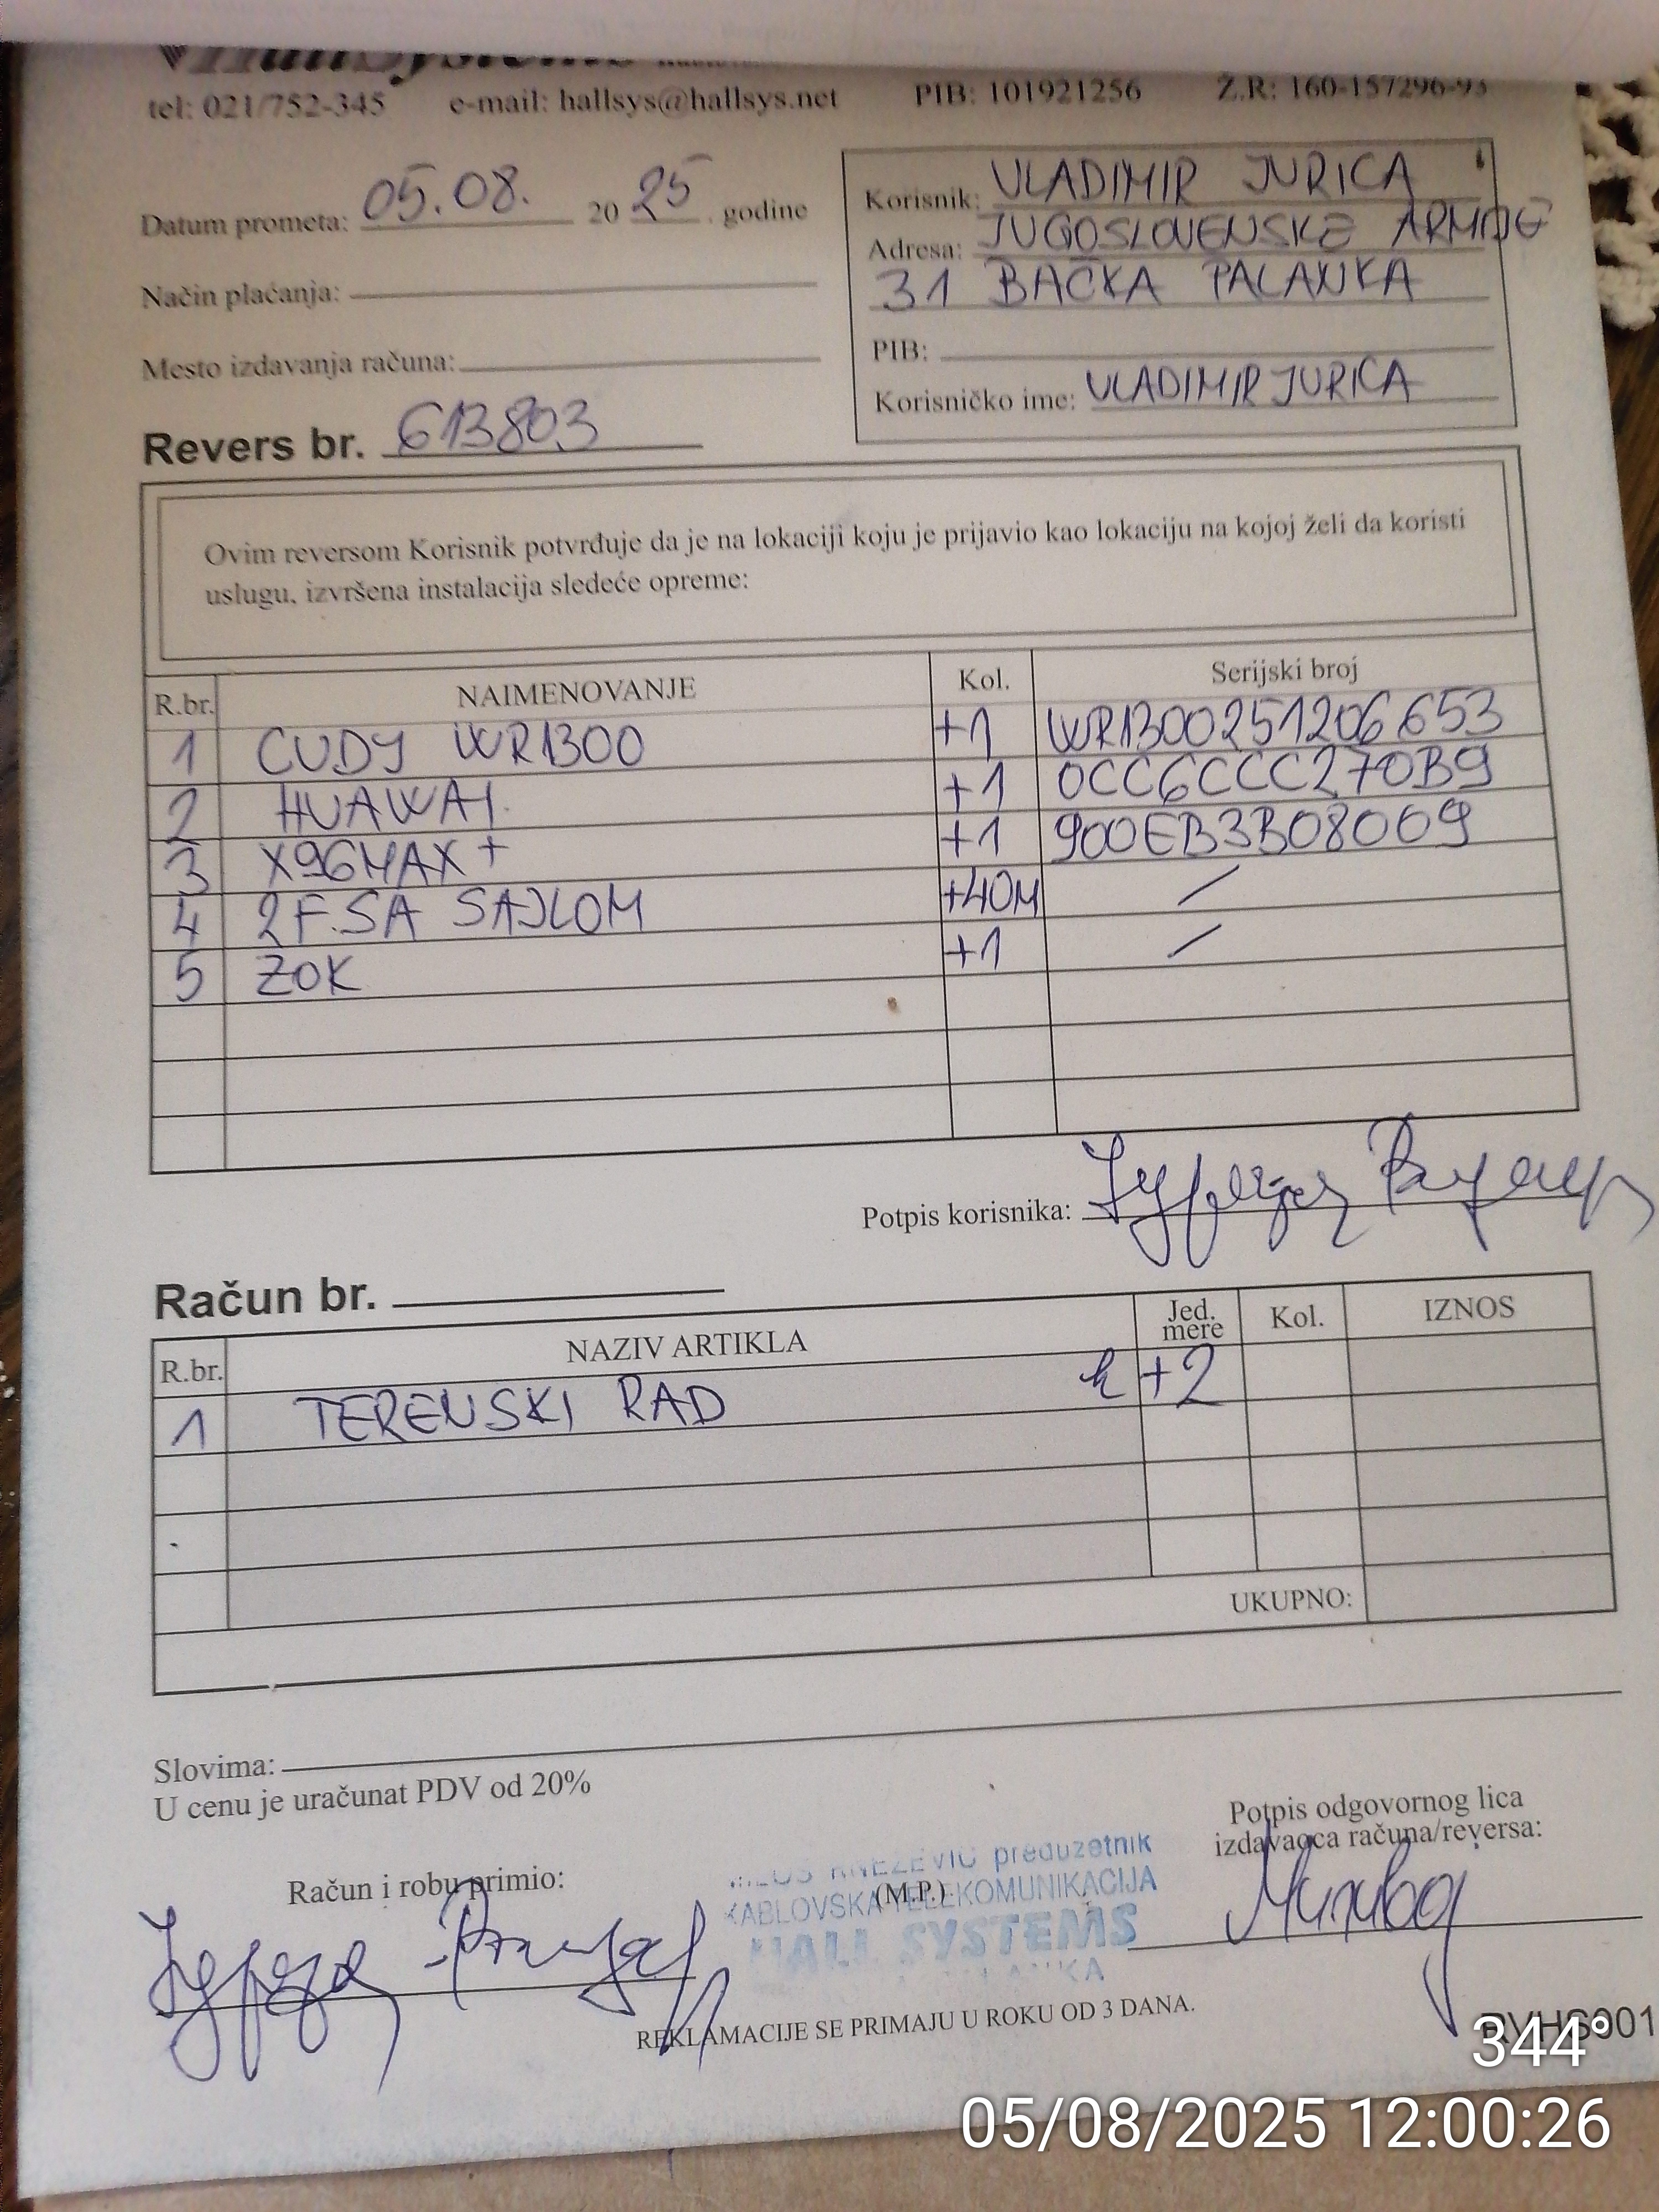 HallSystems
tel: 021/752-345 e-mail: hallsys@hallsys.net PIB: 101921256 Ž.R: 160-157296-93
Datum prometa: 05.08. 2025. godine
Način plaćanja:
Mesto izdavanja računa:
Revers br. 613803
Korisnik: VLADIMIR JURICA
Adresa: JUGOSLOVENSKE ARMIJE
31 BAČKA PALANKA
PIB:
Korisničko ime: VLADIMIRJURICA
Ovim reversom Korisnik potvrđuje da je na lokaciji koju je prijavio kao lokaciju na kojoj želi da koristi
uslugu, izvršena instalacija sledeće opreme:
R.br. NAIMENOVANJE Kol. Serijski broj
1 CUDY WR1300 +1 WR1300251206653
2 HUAWAI +1 0CC6CCC270B9
3 X96MAX+ +1 900EB3B08009
4 2F.SA SAJLOM +40M /
5 ZOK +1 /
Potpis korisnika:
Račun br.
R.br. NAZIV ARTIKLA Jed. mere Kol. IZNOS
1 TERENSKI RAD h +2
UKUPNO:
Slovima:
U cenu je uračunat PDV od 20%
Potpis odgovornog lica
izdavaoca računa/reversa:
Račun i robu primio:
(M.P.)
KNEZEVIC preduzetnik
KABLOVSKA TELEKOMUNIKACIJA
HALL SYSTEMS
REKLAMACIJE SE PRIMAJU U ROKU OD 3 DANA.
RVHS001
344°
05/08/2025 12:00:26